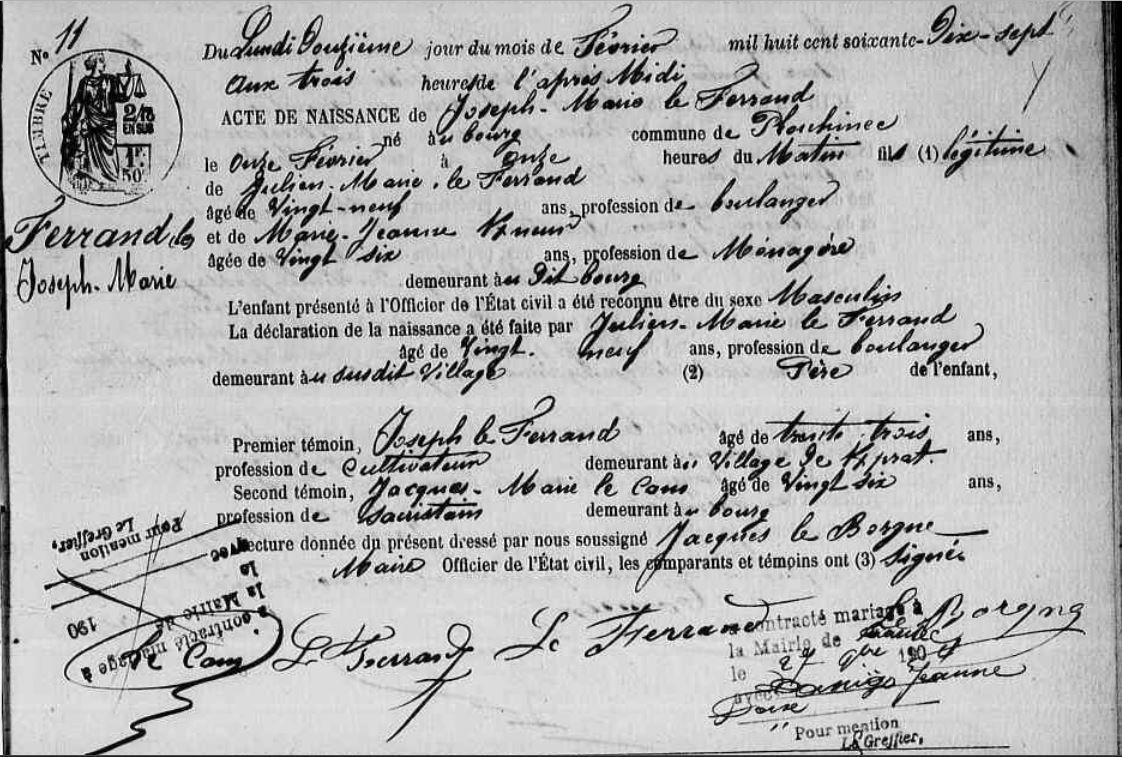 No 11
Du Lundi Douzième jour du mois de Février mil huit cent soixante-Dix-sept
aux trois heures de l'après Midi
ACTE DE NAISSANCE de Joseph-Marie le Ferrand
né àu bourg commune de Plouhinec
le onze Février à onze heures du Matin fils (1) légitime
de Julien-Marie le Ferrand
âgé de Vingt-neuf ans, profession de boulanger
et de Marie-Jeanne
âgée de Vingt six ans, profession de Ménagère
demeurant àu Dit bourg
L'enfant présenté à l'Officier de l'État civil a été reconnu être du sexe Masculin
La déclaration de la naissance a été faite par Julien-Marie le Ferrand
âgé de Vingt-neuf ans, profession de boulanger
demeurant àu susdit Village (2) Père de l'enfant,
Premier témoin, Joseph le Ferrand âgé de trente-trois ans,
profession de Cultivateur demeurant àu Village de
Second témoin, Jacques-Marie le Cam âgé de Vingt six ans,
profession de Sacristain demeurant àu bourg
Lecture donnée du présent dressé par nous soussigné Jacques le Borgne
Maire Officier de l'État civil, les comparants et témoins ont (3) signé
TIMBRE
2/10
EN SUS
1F
50c
Ferrand le
Joseph-Marie
a contracté mariage à
la Mairie de
le 190
avec
Pour mention
Le Greffier,
Le Cam Le Ferrand Le Ferrand Le Borgne
a contracté mariage à
la Mairie de
le 27 9bre 190
avec Jeanne
Pour mention
Le Greffier,